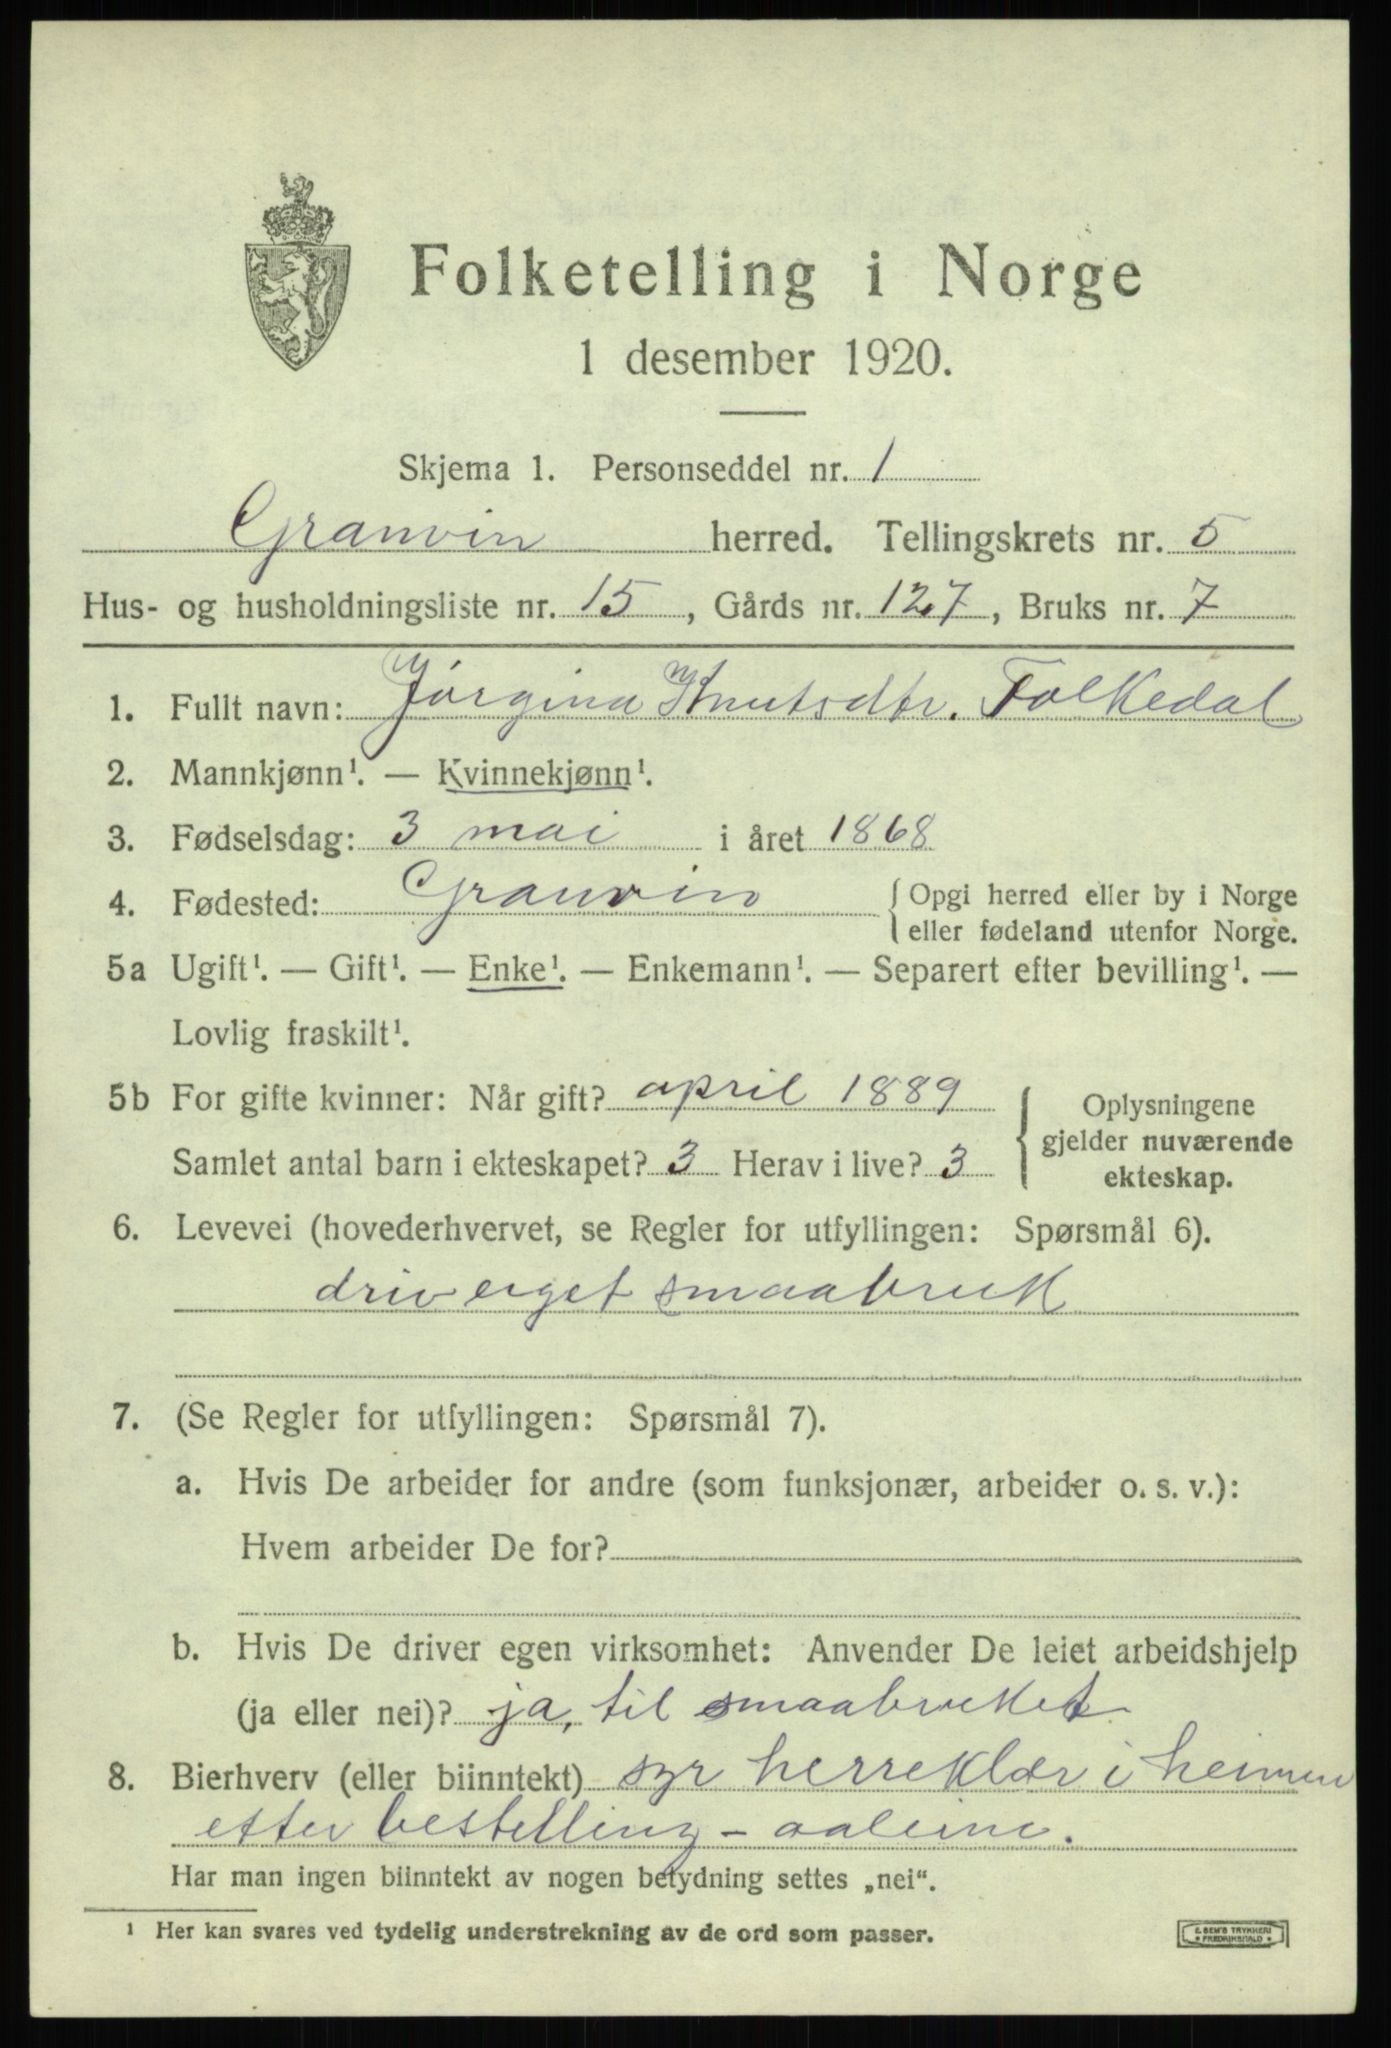 Folketelling i Norge
1 desember 1920.
Skjema 1. Personseddel nr. 1
Granvin herred. Tellingskrets nr. 5
Hus- og husholdningsliste nr. 15, Gårds nr. 127, Bruks nr. 7
1. Fullt navn: Jörgina Knutsdtr. Folkedal
2. Mannkjønn¹. — Kvinnekjønn¹.
3. Fødselsdag: 3 mai i året 1868
4. Fødested: Granvin { Opgi herred eller by i Norge
eller fødeland utenfor Norge.
5a Ugift¹. — Gift¹. — Enke¹. — Enkemann¹. — Separert efter bevilling¹. —
Lovlig fraskilt¹.
5b For gifte kvinner: Når gift? april 1889
Samlet antal barn i ekteskapet? 3 Herav i live? 3
Oplysningene
gjelder nuværende
ekteskap.
6. Levevei (hovederhvervet, se Regler for utfyllingen: Spørsmål 6).
driv eiget smaabruk
7. (Se Regler for utfyllingen: Spørsmål 7).
a. Hvis De arbeider for andre (som funksjonær, arbeider o. s. v.):
Hvem arbeider De for?
b. Hvis De driver egen virksomhet: Anvender De leiet arbeidshjelp
(ja eller nei)? ja, til smaabruket
8. Bierhverv (eller biinntekt) syr herreklær i heimen
etter bestelling – aaleine.
Har man ingen biinntekt av nogen betydning settes „nei“.
¹ Her kan svares ved tydelig understrekning av de ord som passer.
E. SEM'S TRYKKERI
FREDRIKSHALD